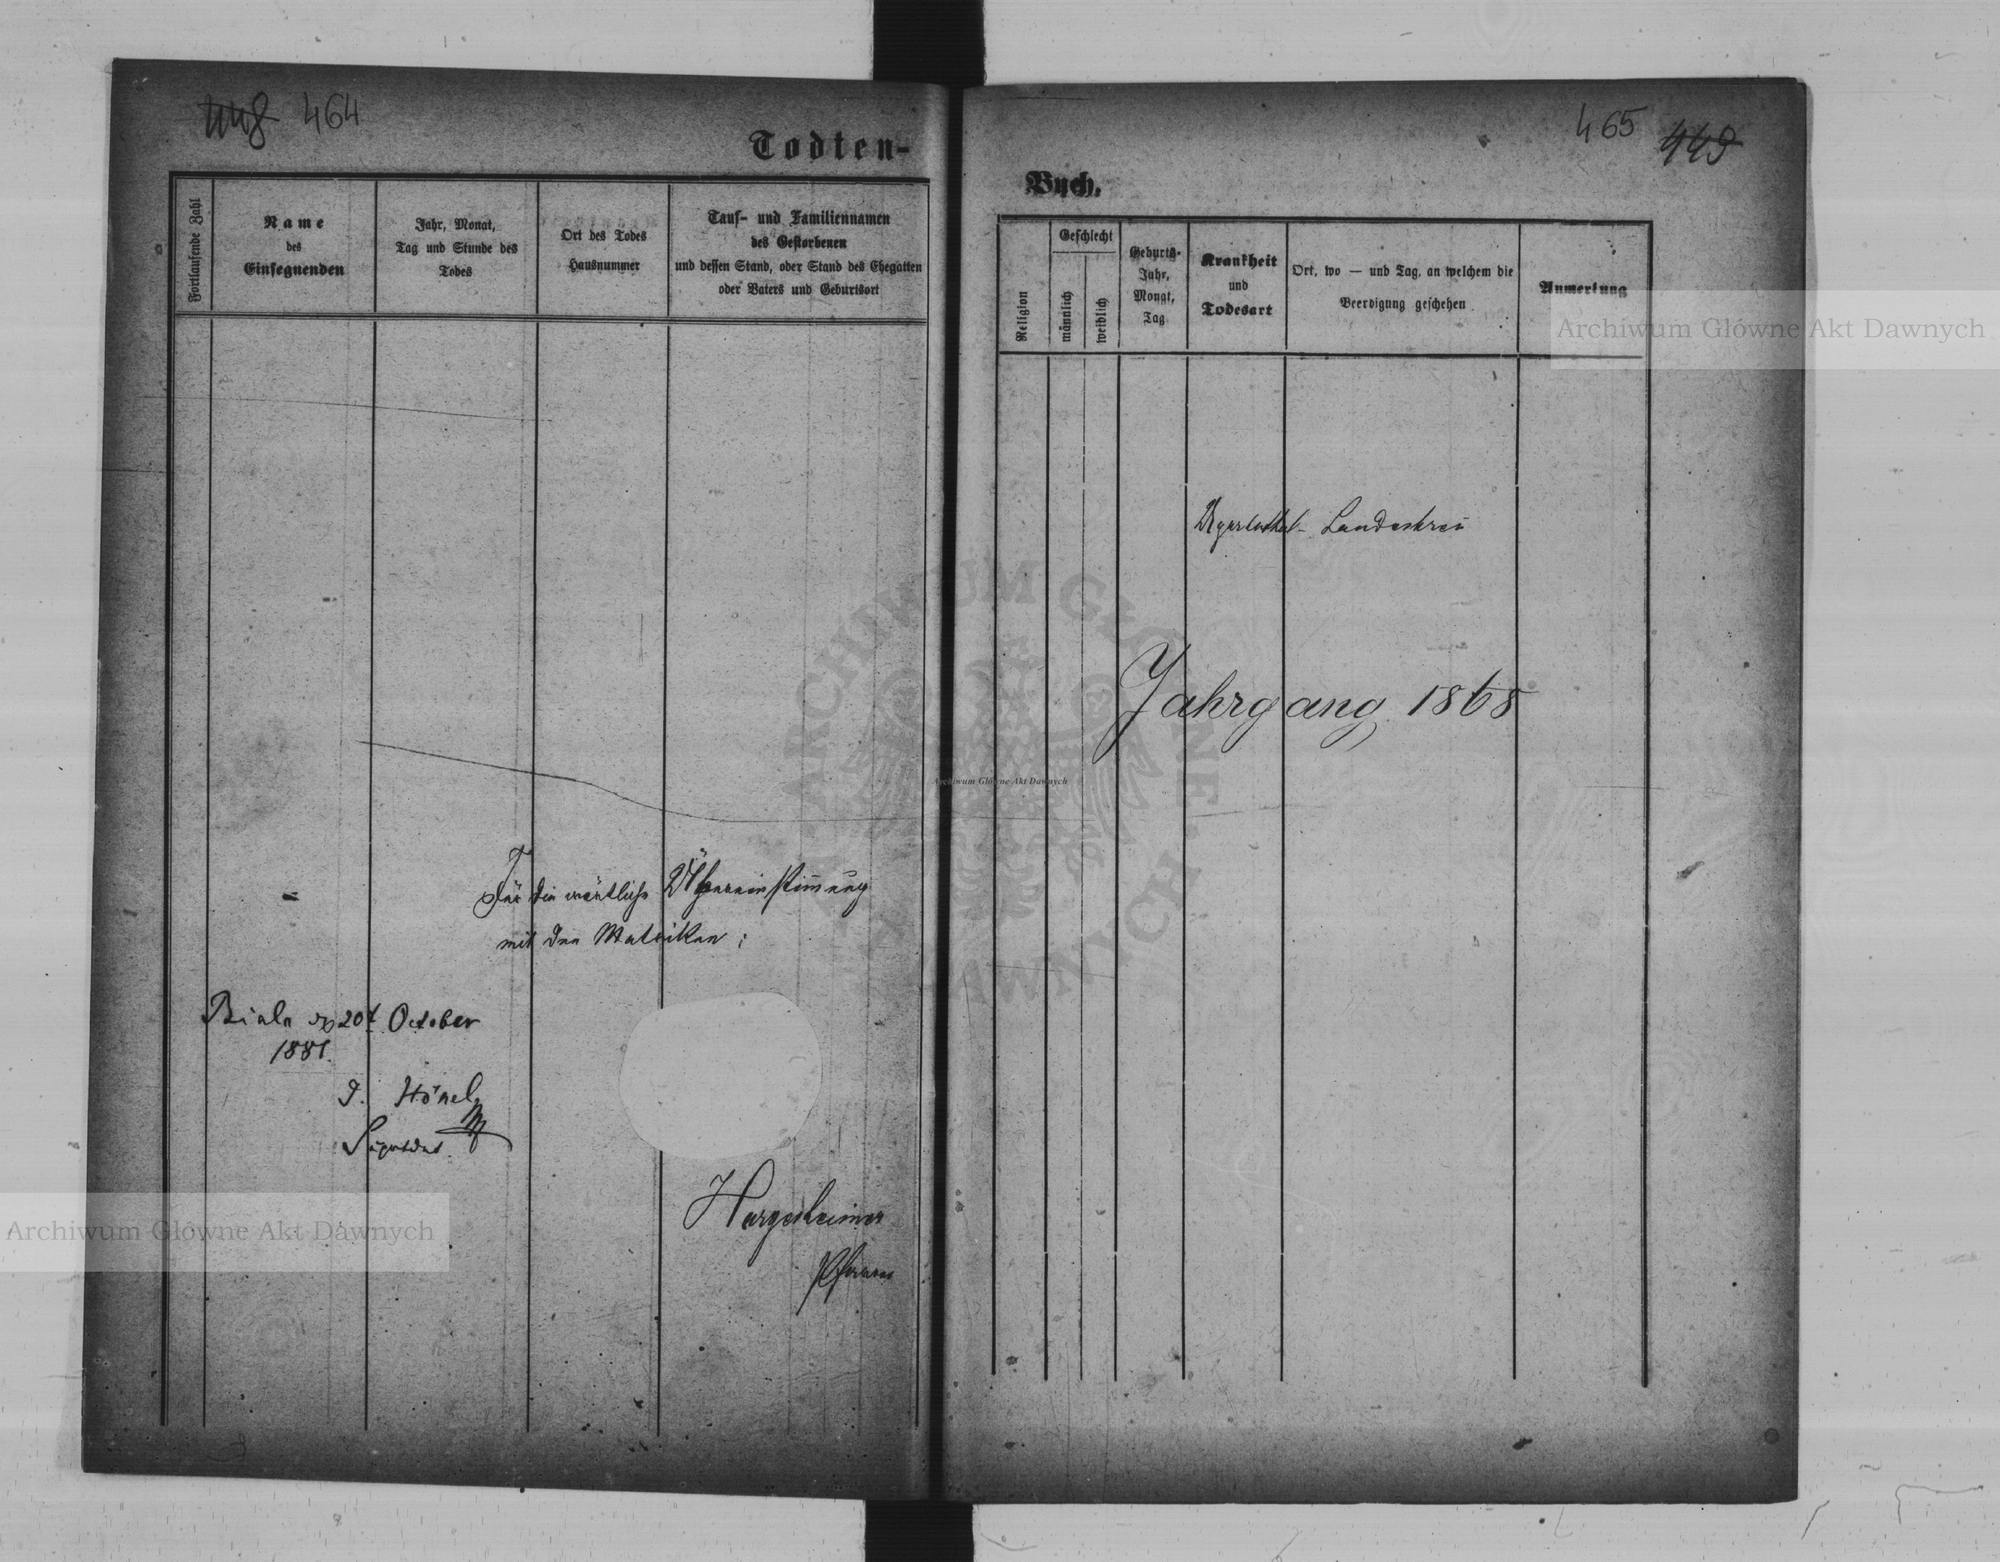 448 464
Todten-
Fortlaufende Zahl
Name
des
Einsegnenden
Jahr, Monat,
Tag und Stunde des
Todes
Ort des Todes
Hausnummer
Tauf- und Familiennamen
des Gestorbenen
und dessen Stand, oder Stand des Ehegatten
oder Vaters und Geburtsort
Für die wörtliche Übereinstimmung
mit den Matriken:
Biala 20t October
1881.
J. Hönel
Hargesheimer
Pfarrer
465 449
Buch.
Religion
Geschlecht
männlich
weiblich
Geburts-
Jahr,
Monat,
Tag
Krankheit
und
Todesart
Ort, wo — und Tag, an welchem die
Beerdigung geschehen
Anmerkung
Jahrgang 1868
Archiwum Główne Akt Dawnych
ARCHIWUM GŁÓWNE AKT DAWNYCH
Archiwum Główne Akt Dawnych
Archiwum Główne Akt Dawnych